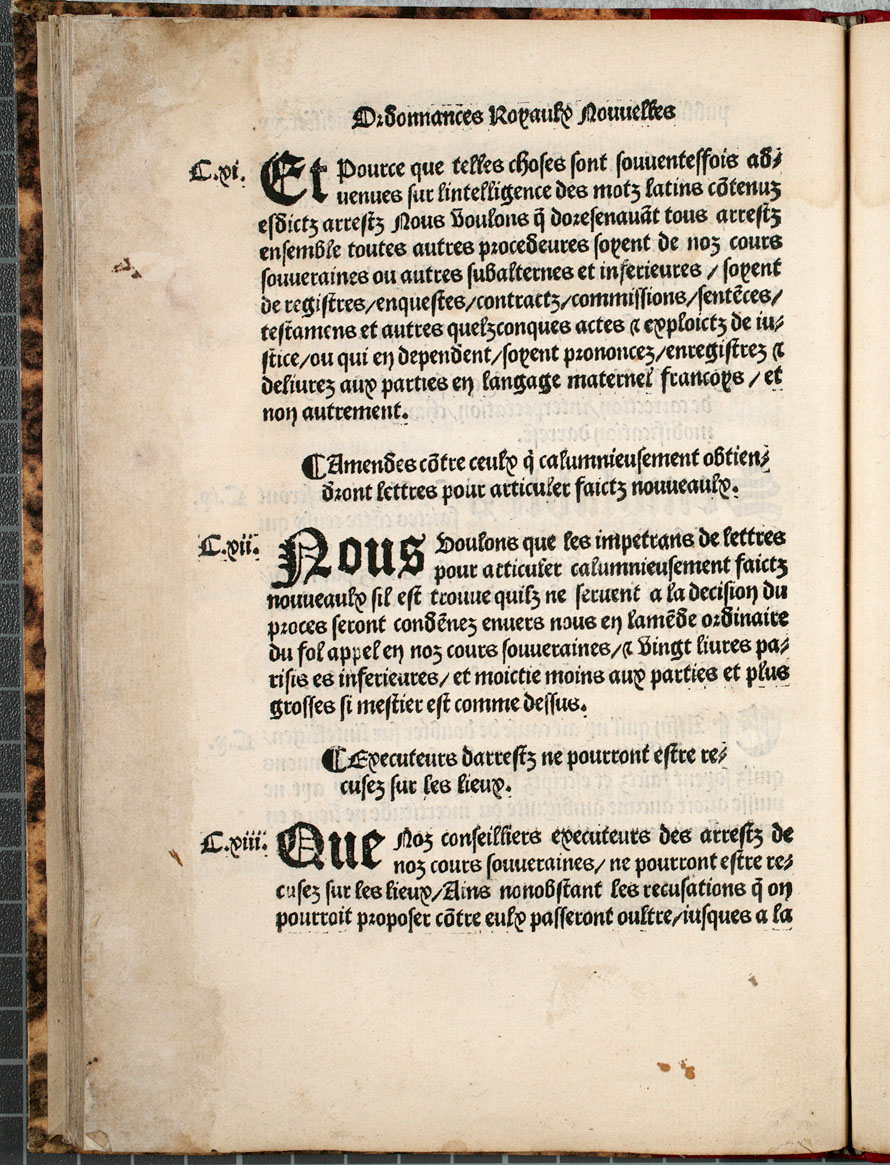 Ordonnances Royaulx Nouvelles
C.xi. Et Pource que telles choses sont souuentesfois ad⸗
uenues sur lintelligence des motz latins cōtenuz
esdictz arrestz Nous Voulons q̄ doresenauāt tous arrestz
ensemble toutes autres procedeures soyent de noz cours
souueraines ou autres subalternes et inferieures / soyent
de registres/enquestes/contractz/commissions/sentēces/
testamens et autres quelzconques actes ⁊ exploictz de iu⸗
stice/ou qui en dependent/soyent prononcez/enregistrez ⁊
deliurez aux parties en langage maternel francoys / et
non autrement.
¶Amendes cōtre ceulx q̄ calumnieusement obtien⸗
dront lettres pour articuler faictz nouueaulx.
C.xii. Nous Voulons que les impetrans de lettres
pour articuler calumnieusement faictz
nouueaulx sil est trouue quilz ne seruent a la decision du
proces seront condēnez enuers nous en lamēde ordinaire
du fol appel en noz cours souueraines/⁊ Vingt liures pa⸗
risis es inferieures/ et moictie moins aux parties et plus
grosses si mestier est comme dessus.
¶Executeurs darrestz ne pourront estre re⸗
cusez sur les lieux.
C.xiii. Que Noz conseilliers executeurs des arrestz de
noz cours souueraines/ ne pourront estre re⸗
cusez sur les lieux/Ains nonobstant les recusations q̄ on
pourroit proposer cōtre eulx passeront oultre/iusques a la